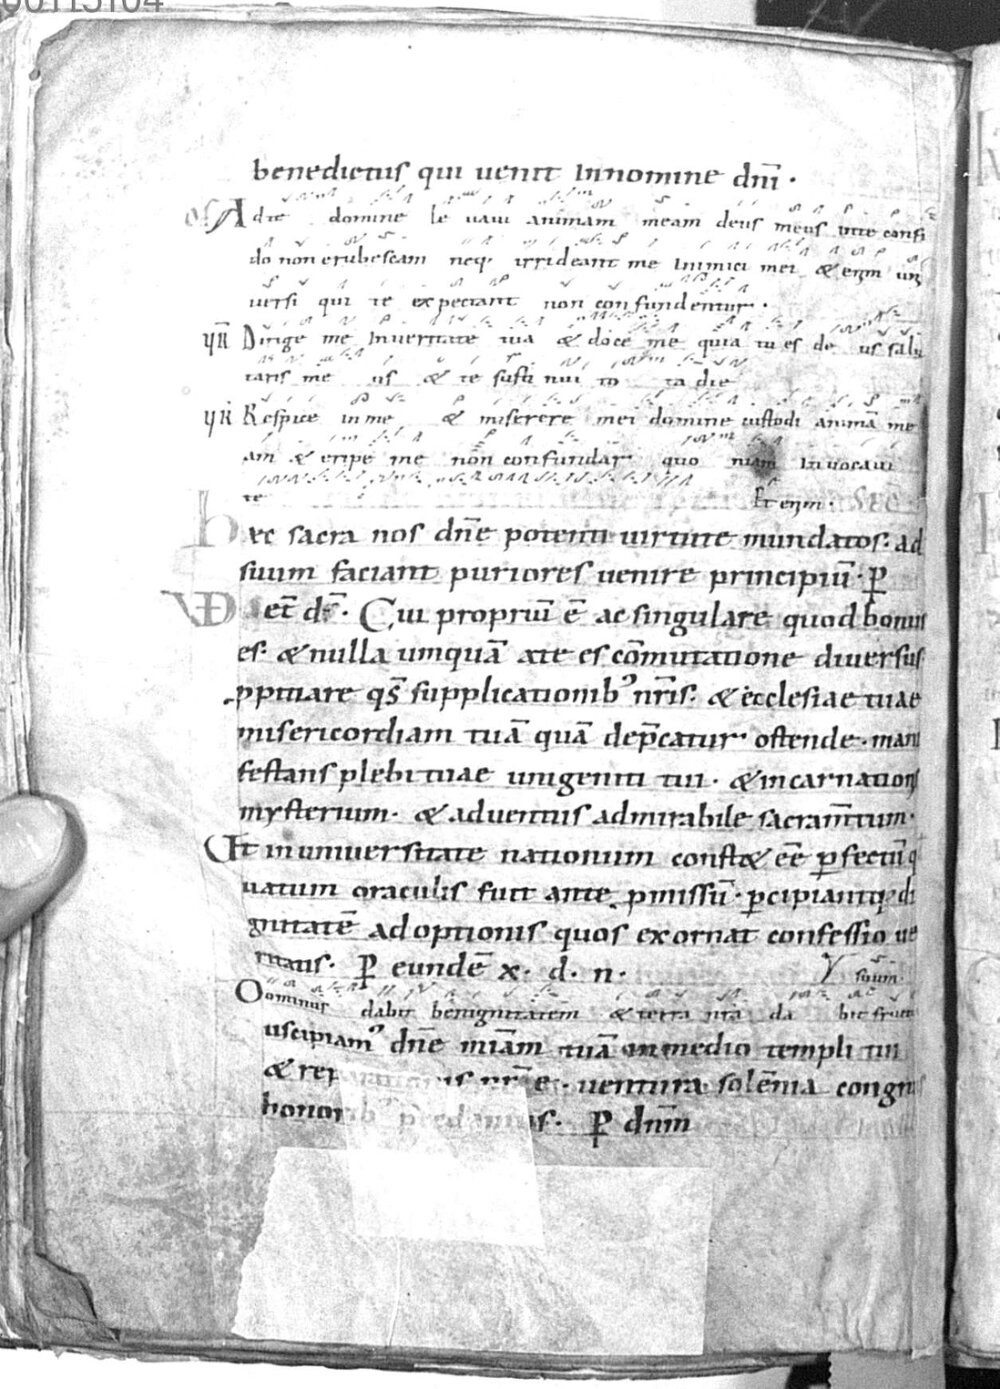 benedictus qui uenit Innomine dn̄i ·
of Ad te domine le uaui animam meam deus meus inte confi
do non erubescam neq; irrideant me Inimici mei & eni̅m uni
uersi qui te expectant non con fundentur ·
Dirige me Inueritate tua & doce me quia tu es de us salu
taris me us & te susti nui to ta die
Respice in me & miserere mei domine custodi animā me
am & eripe me non confundar quo niam Inuocaui
te Et enim ·
Hec sacra nos dn̄e potenti uirtute mundatos. ad
suum faciant puriores uenire principiū · P̲
VD &et̄ ds̄ · Cui propriū ē ac singulare quod bonus
es · & nulla umquā a te es cōmutatione diuersus
ppitiare qs̄ supplicationib⁹ nr̄is · & ęcclesiae tuae
misericordiam tuā quā dep̄catur ostende · mani
festans plebi tuae unigeniti tui · & incarnationis
mysterium · & aduentus admirabile sacram̄tum ·
Ut in uniuersitate nationum const& eē p̲fectū q
uatum oraculis fuit ante pmissū · p̲cipiantq; di
gnitatē adoptionis quos exornat confessio ue
ritatis · P̲ eundē x · d · n ·
Dominus dabit benignitatem & terra nr̄a da bit fruct
uscipiam⁹ dn̄e mīam tuā in medio templi tui
& rep arationis nr̄ae · uentura solēnia congruis
honorib⁹ precedamus · P̲ dnm̄